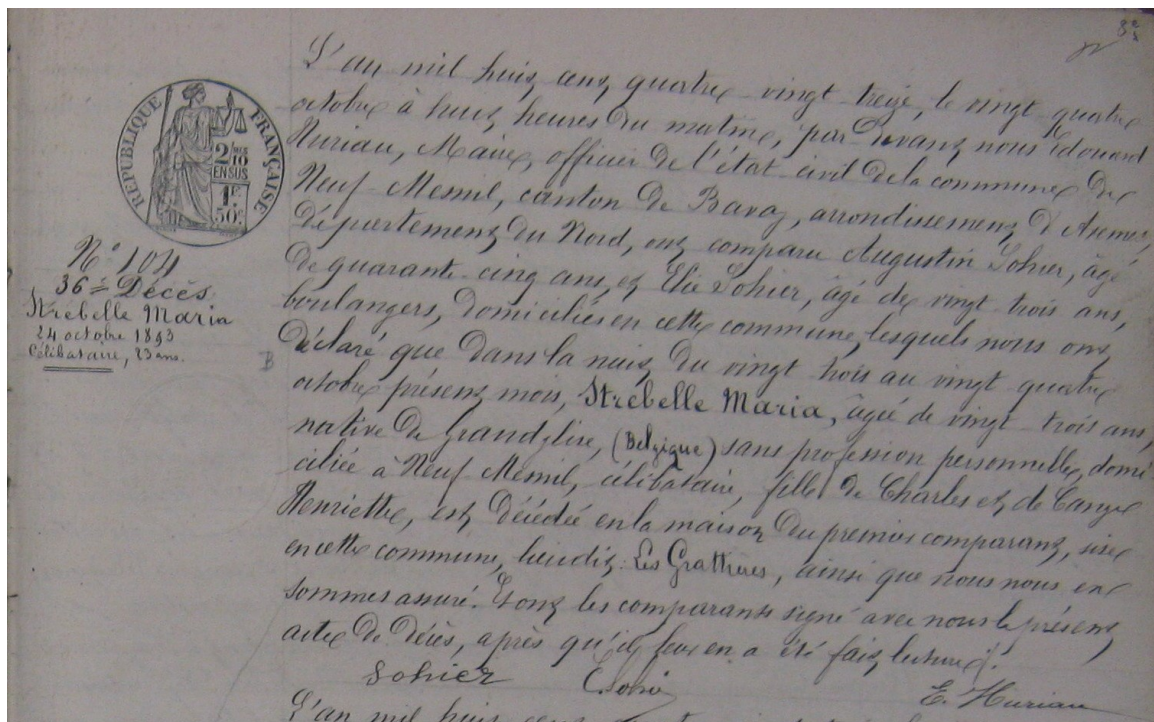 8e
RÉPUBLIQUE FRANÇAISE
2/10 EN SUS
1F. 50c
N° 104
36e Décès.
Strebelle Maria
24 octobre 1893
Célibataire, 23 ans.
B
L'an mil huit cent quatre-vingt-treize, le vingt quatre
octobre à huit heures du matin, par devant nous Edouard
Huriau, Maire, officier de l'état-civil de la commune de
Neuf-Mesnil, canton de Bavay, arrondissement d'Avesnes,
département du Nord, ont comparu Augustin Sohier, âgé
de quarante-cinq ans, et Elie Sohier, âgé de vingt trois ans,
boulangers, domiciliés en cette commune, lesquels nous ont
déclaré que dans la nuit du vingt trois au vingt quatre
octobre présent mois, Strebelle Maria, âgée de vingt-trois ans,
native de Grandglise, (Belgique) sans profession personnelle, domi-
ciliée à Neuf-Mesnil, célibataire, fille de Charles et de
Henriette, est décédée en la maison du premier comparant, sise
en cette commune, lieudit: Les, ainsi que nous nous en
sommes assuré. Et ont les comparants signé avec nous le présent
acte de décès, après qu'il leur en a été fait lecture.
Sohier E. Sohier E. Huriau
L'an mil huit cent